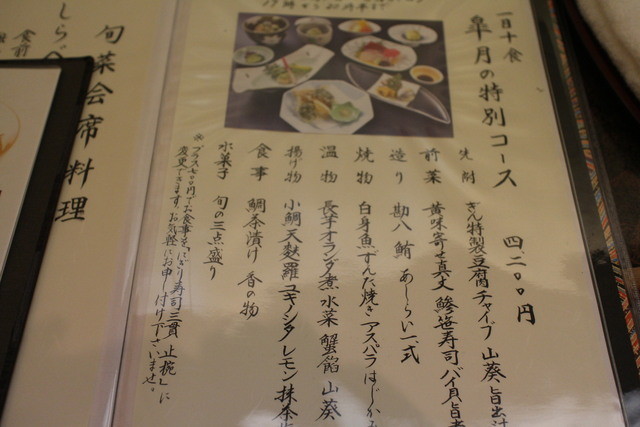 一日十食
皐月の特別コース
四二〇〇円
先附 ぎん特製豆腐 チャイブ 山葵 旨出汁
前菜 黄味寄せ真丈 鯵笹寿司 バイ貝旨煮
造り 勘八 鮪 あしらい一式
焼物 白身魚ずんだ焼き アスパラ はじかみ
温物 長芋オランダ煮 水菜 蟹餡 山葵
揚げ物 小鯛天麩羅 ユキノシタ レモン 抹茶塩
食事 鯛茶漬け 香の物
水菓子 旬の三点盛り
※プラス七〇〇円でお食事を、「にぎり寿司三貫 止椀」に
変更できます。お気軽にお申し付け下さいませ。
旬菜会席料理
しらべ
食前